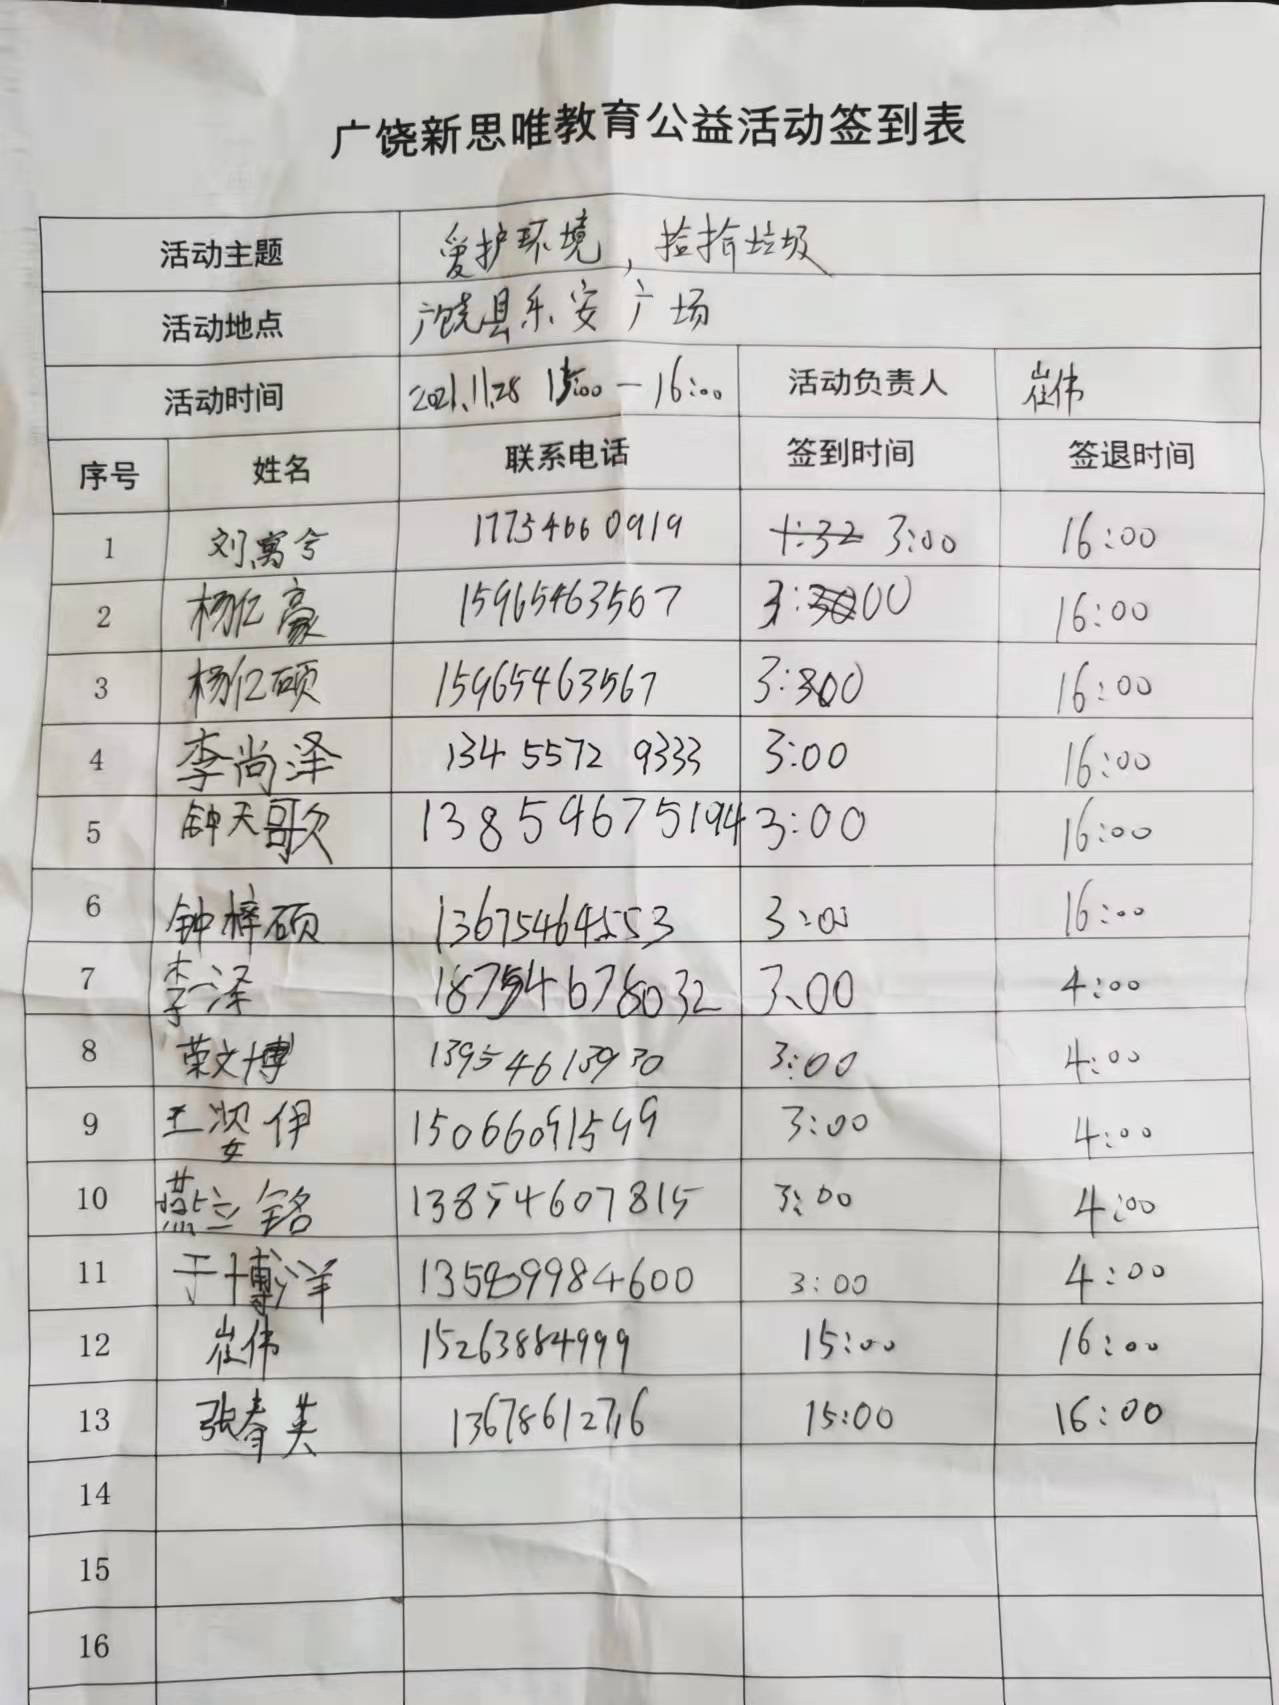 广饶新思唯教育公益活动签到表
活动主题 爱护环境，捡拾垃圾
活动地点 广饶县乐安广场
活动时间 2021.11.28 15:00—16:00 活动负责人 崔伟
序号 姓名 联系电话 签到时间 签退时间
1 刘寓兮 17754660919 1:32 3:00 16:00
2 杨亿豪 15965463567 3:00 16:00
3 杨亿硕 15965463567 3:00 16:00
4 李尚泽 134 5572 9333 3:00 16:00
5 钟天歌 13854675194 3:00 16:00
6 钟梓硕 13675464553 3:00 16:00
7 李一泽 18754678032 3:00 4:00
8 荣文博 13954613930 3:00 4:00
9 王姿伊 15066091599 3:00 4:00
10 燕立铭 13854607815 3:00 4:00
11 于博洋 4:00 3:00
12 崔伟 15263884999 15:00 16:00
13 张春英 13678612716 15:00 16:00
14
15
16